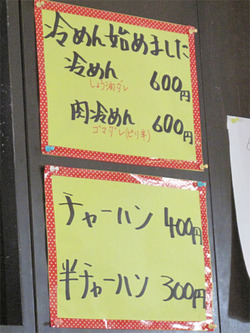 冷めん始めました
冷めん 600円
しょう油ダレ
肉冷めん 600円
ゴマダレ(ピリ辛)
チャーハン 400円
半チャーハン 300円